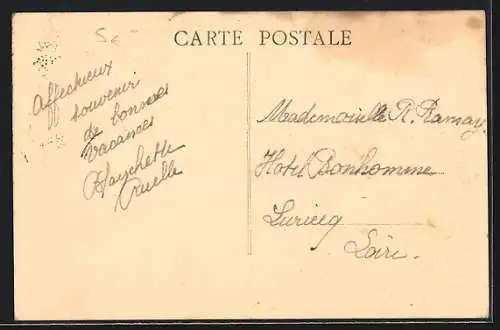 CARTE POSTALE
5€
Affectueux
souvenir
de bonnes
vacances
Ruelle
Mademoiselle R. Ramay
Hotel Bonhomme
Luriecq
Loire.